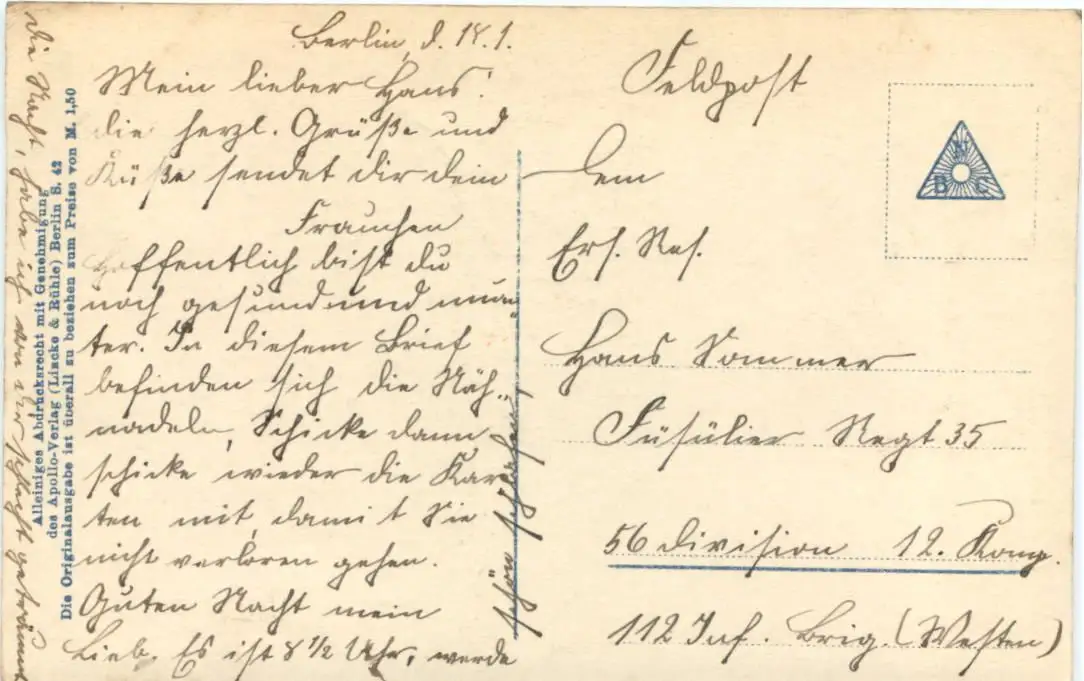 Berlin, d. 18.1.
Mein lieber Hans!
die herzl. Grüße und
Küße sendet dir dein
Frauchen
Hoffentlich bist du
noch gesund und mun-
ter. In diesem Brief
befinden sich die Näh-
nadeln, Schicke dann
schicke wieder die Kar-
ten mit, damit Sie
nicht verloren gehen.
Guten Nacht mein
Lieb. Es ist 8 1/2 Uhr, werde
schön schlafen,
die Nacht, habe ich von dir schlecht geträumt
Alleiniges Abdrucksrecht mit Genehmigung
des Apollo-Verlag (Lincke & Rühle) Berlin S. 42
Die Originalausgabe ist überall zu beziehen zum Preise von M. 1,50
Feldpost
Dem
Ers. Res.
Hans Sommer
Füsülier Regt 35
56 division 12. Komp.
112 Inf. Brig. (Westen)
N
B C